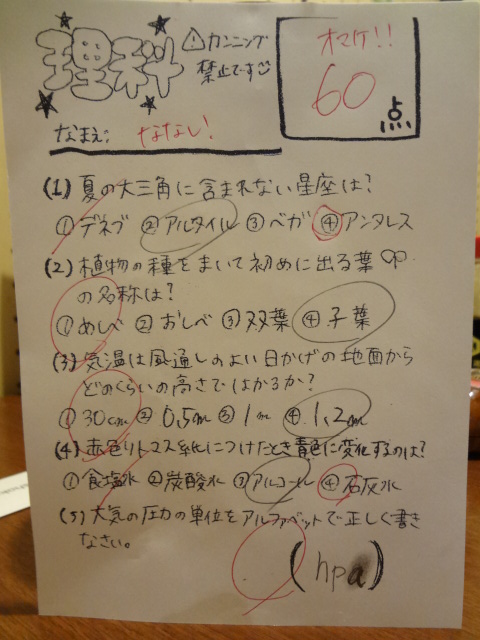 理科
⚠カンニング
禁止です
オマケ!!
60
点
なまえ: ななし!
(1) 夏の大三角に含まれない星座は?
① デネブ ② アルタイル ③ ベガ ④ アンタレス
(2) 植物の種をまいて初めに出る葉
の名称は?
① めしべ ② おしべ ③ 双葉 ④ 子葉
(3) 気温は風通しのよい日かげの地面から
どのくらいの高さではかるか?
① 30cm ② 0,5m ③ 1m ④ 1,2m
(4) 赤色リトマス紙につけたとき青色に変化するのは?
① 食塩水 ② 炭酸水 ③ アルコール ④ 石灰水
(5) 大気の圧力の単位をアルファベットで正しく書き
なさい。
(hpa)